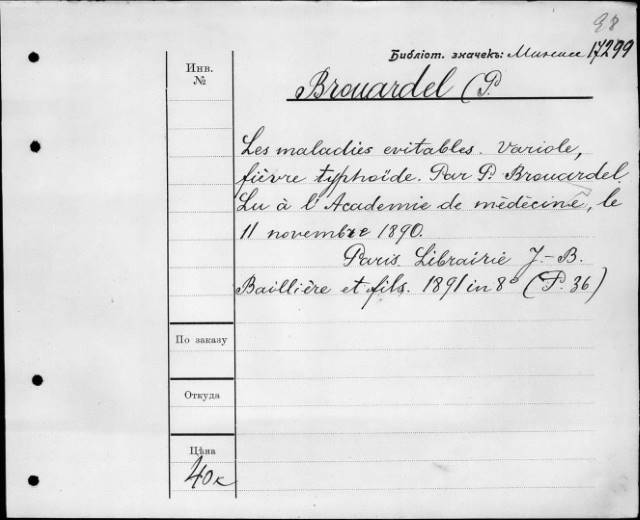 98
Библіот. значекъ: 17299
Инв.
№
Brouardel (P.
Les maladies evitables. Variole,
fièvre typhoïde. Par P. Brouardel.
Lu à l'Academie de médécine, le
11 novembre 1890.
Paris. Librairie J.-B.
Baillière et fils. 1891 in 8° (P. 36)
По заказу
Откуда
Цѣна
40к